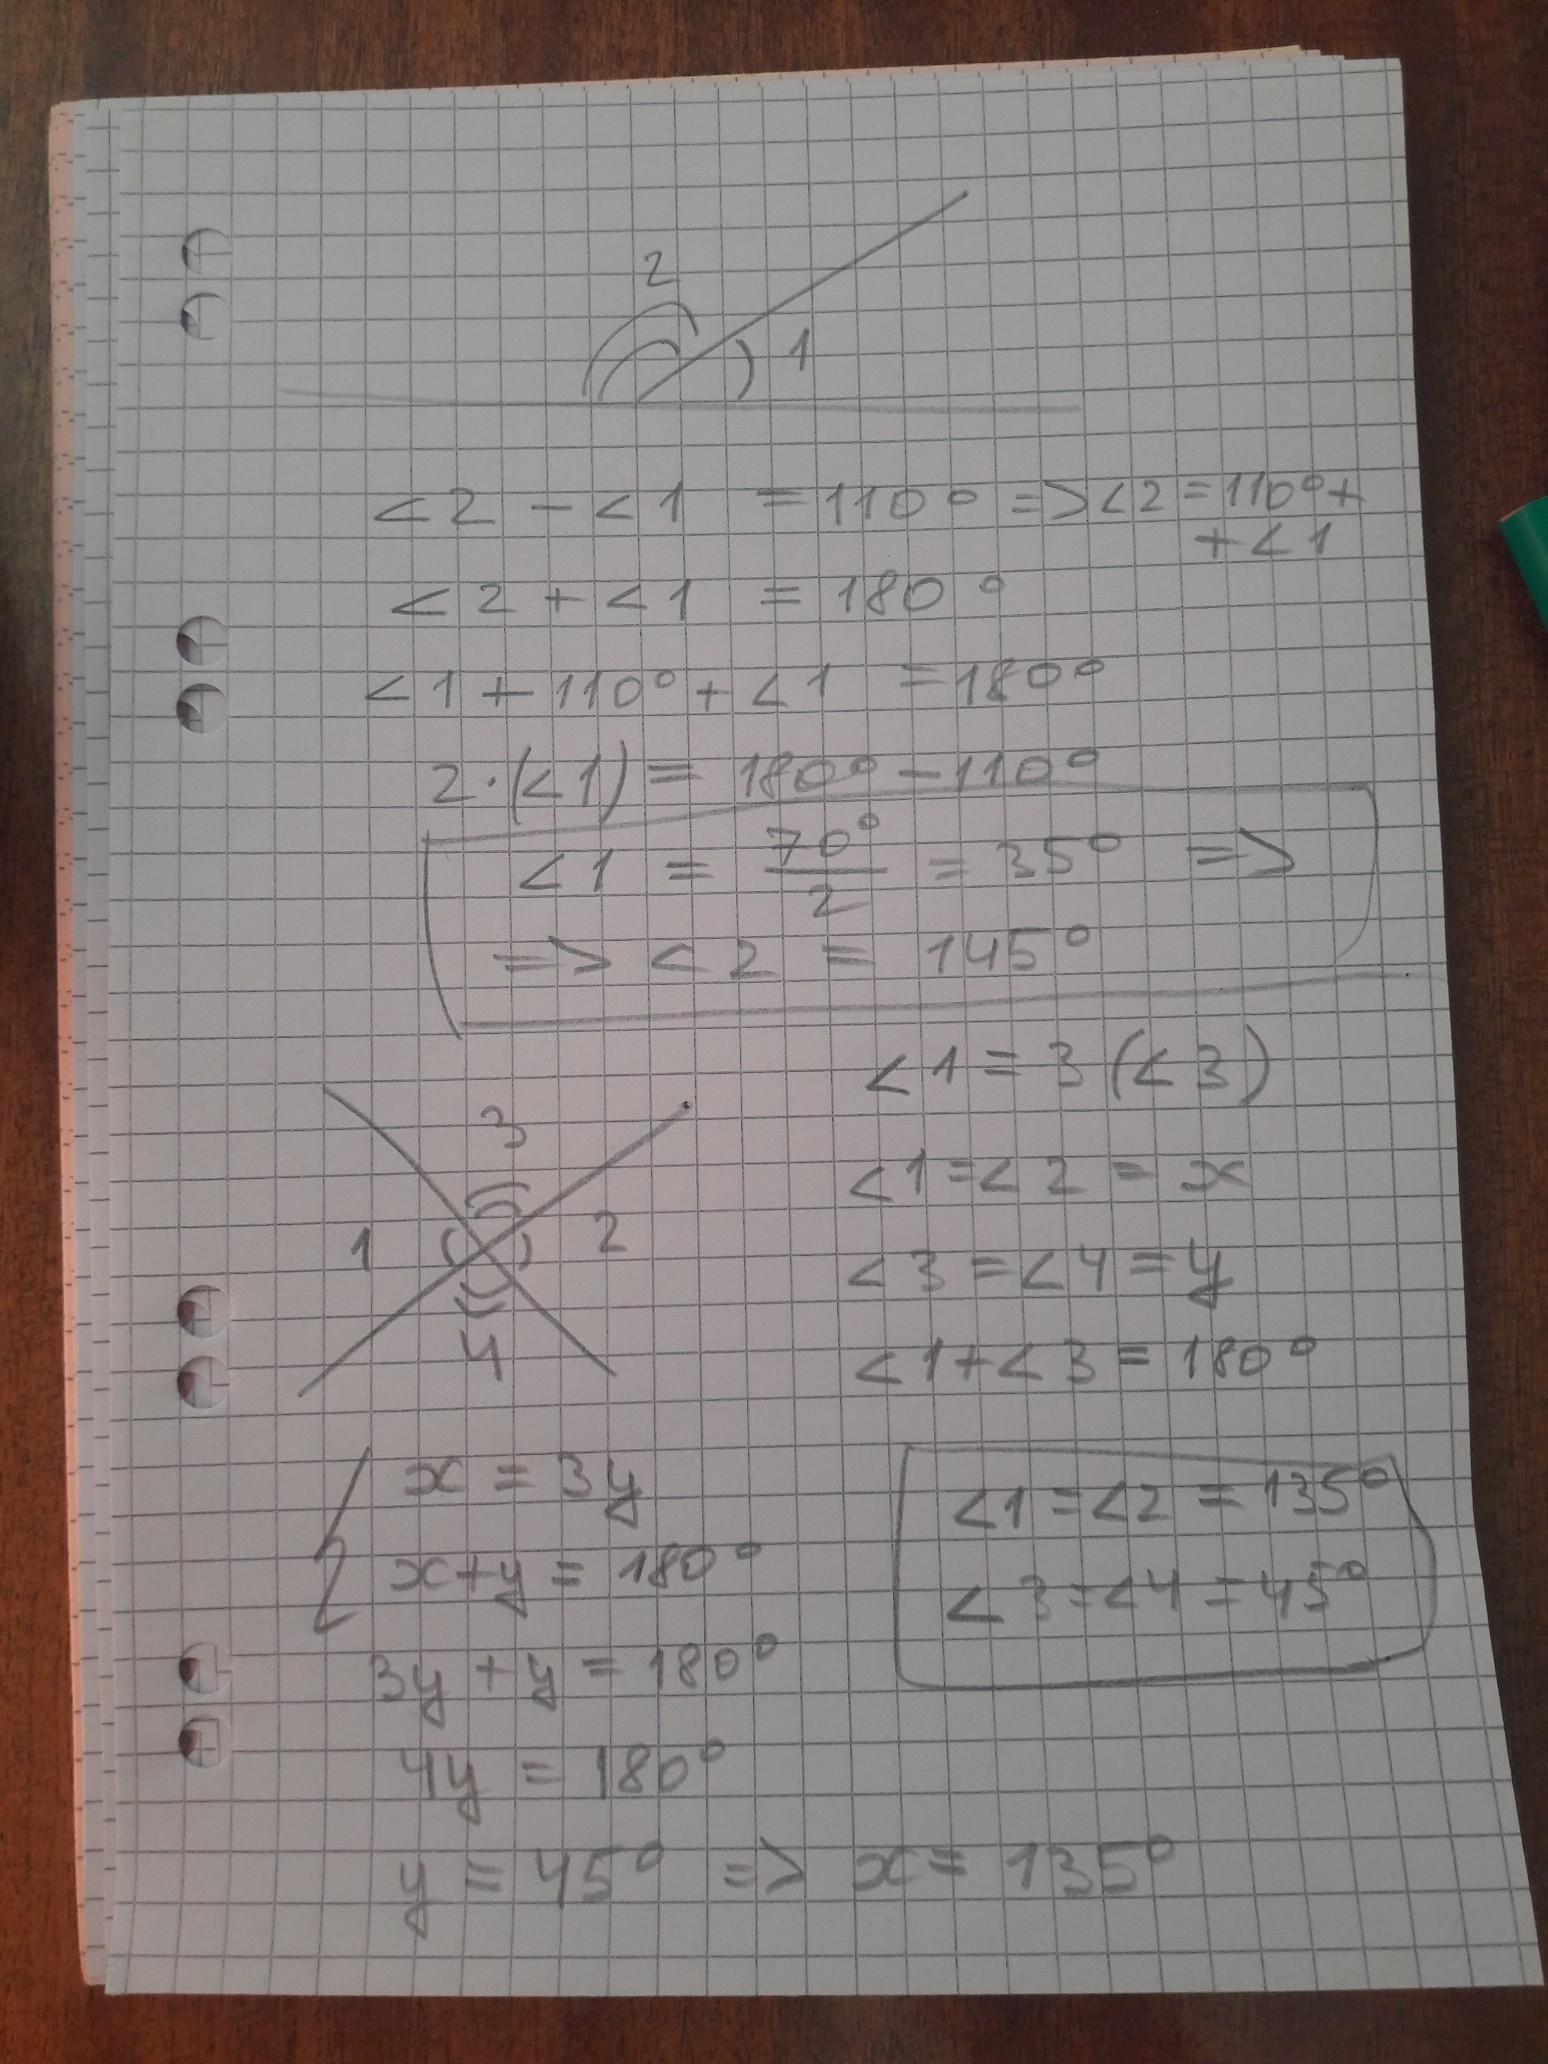 2
1
<2 - <1 = 110° => <2 = 110° +
+ <1
<2 + <1 = 180°
<1 + 110° + <1 = 180°
2·(<1) = 180° - 110°
<1 = 70°/2 = 35° =>
=> <2 = 145°
<1 = 3 (<3)
3
<1 = <2 = x
1
2
<3 = <4 = y
4
<1 + <3 = 180°
{ x = 3y
x + y = 180°
<1 = <2 = 135°
<3 = <4 = 45°
3y + y = 180°
4y = 180°
y = 45° => x = 135°